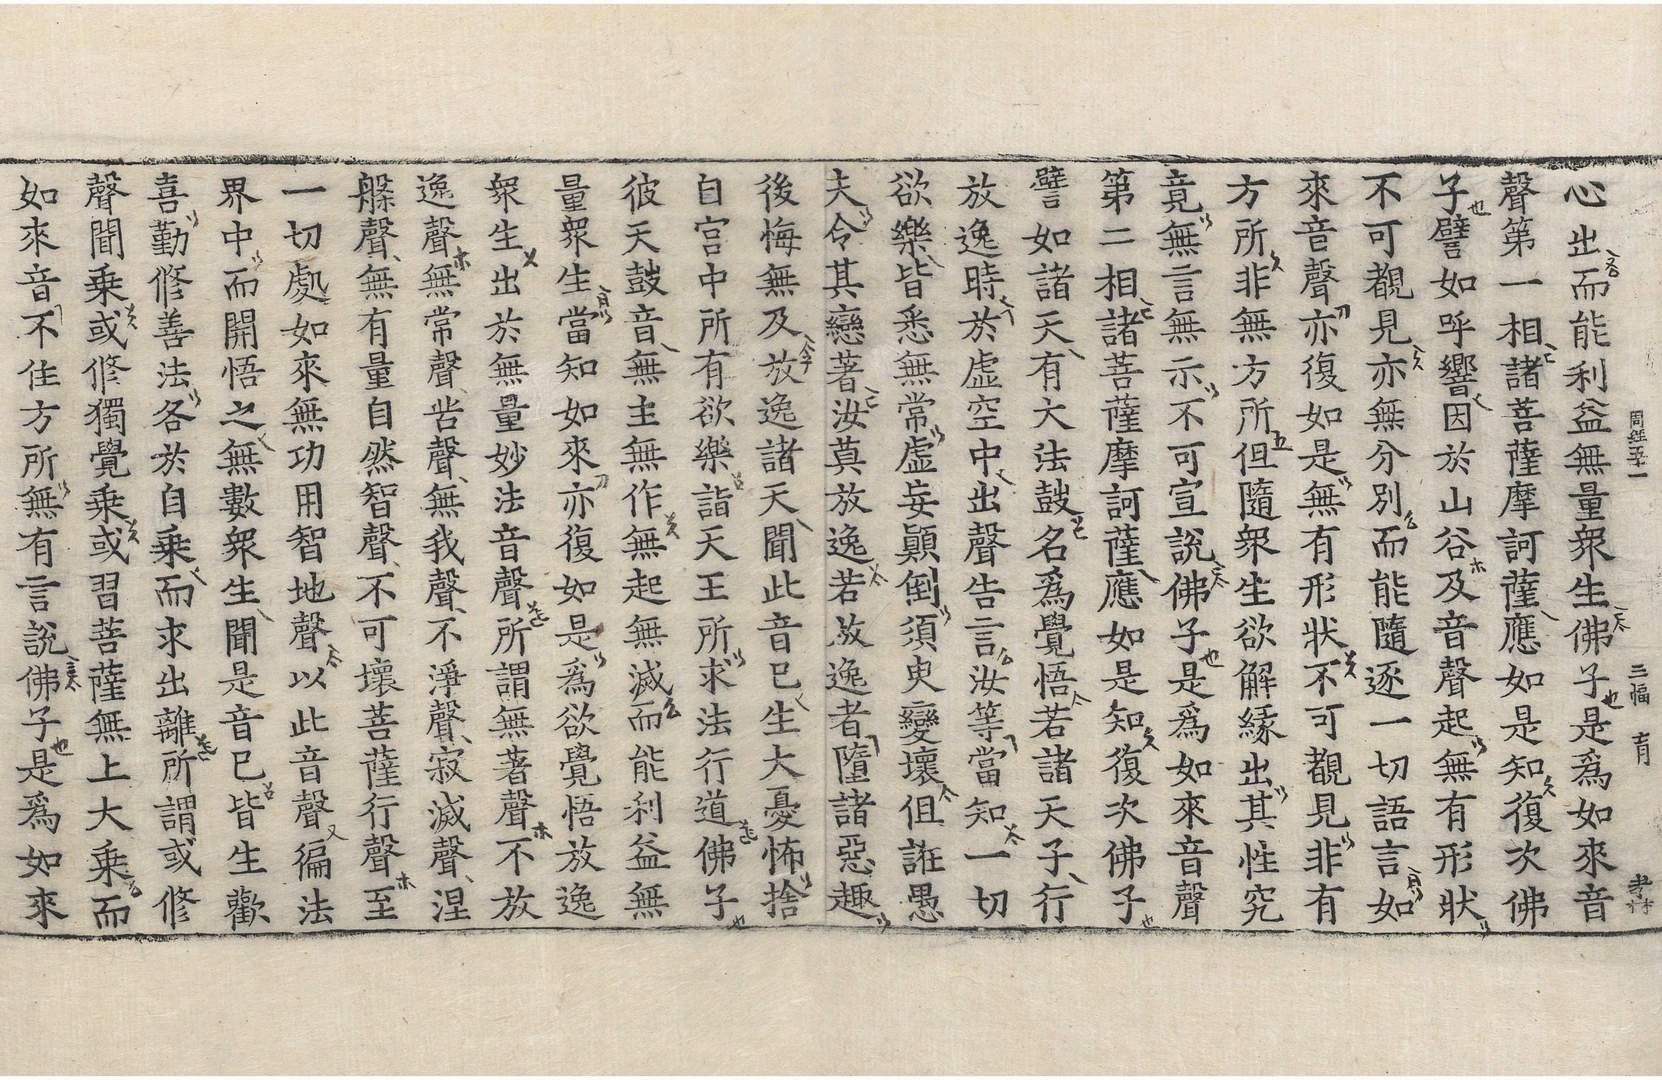 周經五十一 三幅 育 孝林
心出而能利益無量衆生佛子是爲如來音
聲第一相諸菩薩摩訶薩應如是知復次佛
子譬如呼響因於山谷及音聲起無有形狀
不可覩見亦無分別而能隨逐一切語言如
來音聲亦復如是無有形狀不可覩見非有
方所非無方所但隨衆生欲解緣出其性究
竟無言無示不可宣說佛子是爲如來音聲
第二相諸菩薩摩訶薩應如是知復次佛子
譬如諸天有大法鼓名爲覺悟若諸天子行
放逸時於虛空中出聲告言汝等當知一切
欲樂皆悉無常虛妄顚倒須臾變壞但誑愚
夫令其戀著汝莫放逸若放逸者墮諸惡趣
後悔無及放逸諸天聞此音已生大憂怖捨
自宮中所有欲樂詣天王所求法行道佛子
彼天鼓音無主無作無起無滅而能利益無
量衆生當知如來亦復如是爲欲覺悟放逸
衆生出於無量妙法音聲所謂無著聲不放
逸聲無常聲苦聲無我聲不淨聲寂滅聲涅
槃聲無有量自然智聲不可壞菩薩行聲至
一切處如來無功用智地聲以此音聲徧法
界中而開悟之無數衆生聞是音已皆生歡
喜勤修善法各於自乘而求出離所謂或修
聲聞乘或修獨覺乘或習菩薩無上大乘而
如來音不住方所無有言說佛子是爲如來